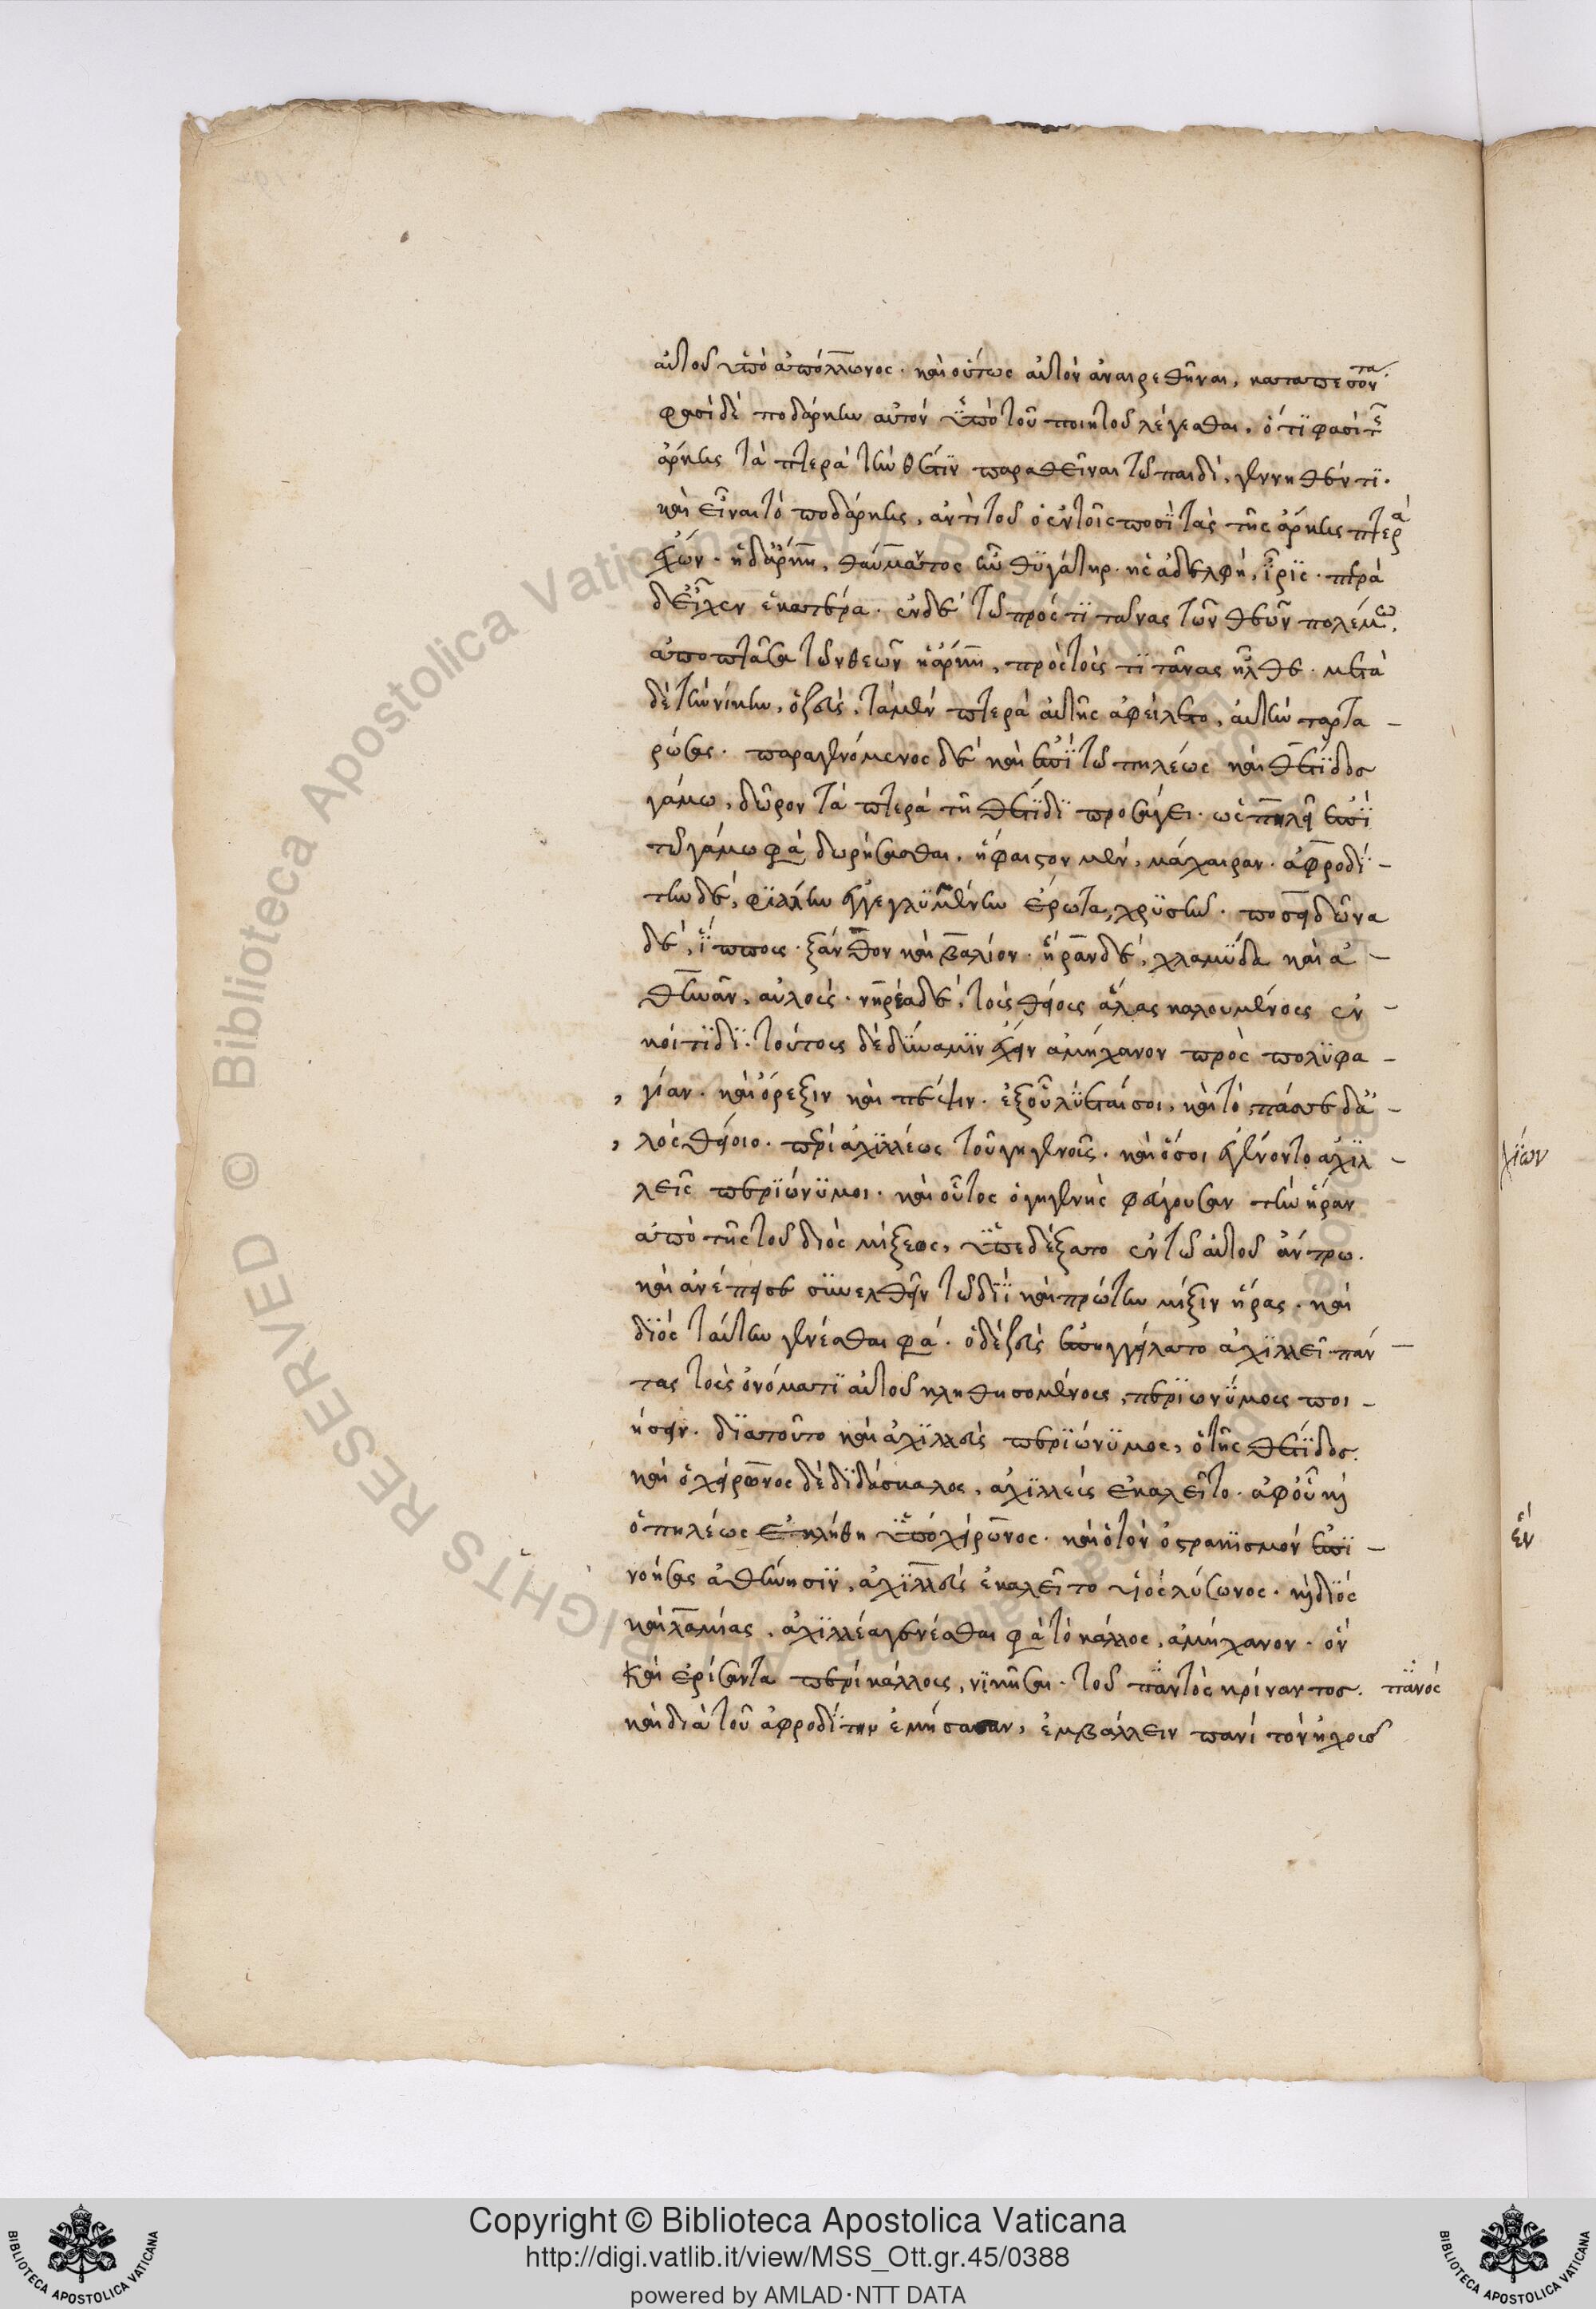 αὐτοῦ ὑπὸ ἀπόλλωνος. καὶ οὕτως αὐτὸν ἀναιρεθῆναι, καταπεσόντα.
φησὶ δὲ ποδάρκην αὐτὸν ὑπὸ τοῦ ποιητοῦ λέγεσθαι, ὅτι φασὶ τῆς
ἄρκης τὰ πτερὰ τὴν θέτιν παραθεῖναι τῶ παιδὶ, γεννηθέντι.
καὶ εἶναι τὸ ποδάρκης, ἀντὶ τοῦ ὁ ἐν τοῖς ποσὶ τὰς τῆς ἄρκης πτερὰ
ἔχων. ἡ δ' ἄρκη, θαύμαντος ἦν θυγάτηρ. ἧς ἀδελφὴ, ἶρις. πτερὰ
δ' εἶχεν ἑκατέρα. ἐν δὲ τῶ πρὸς τιτᾶνας τῶν θεῶν πολέμω,
ἀποπτᾶσα τῶν θεῶν ἡ ἄρκη, πρὸς τοὺς τιτᾶνας ἦλθε. μετὰ
δὲ τὴν νίκην, ὁ ζεὺς, τὰ μὲν πτερὰ αὐτῆς ἀφείλετο, αὐτὴν ταρτα-
ρώσας. παραγενόμενος δὲ καὶ ἐπὶ τῶ πηλέως καὶ θέτιδος
γάμω, δῶρον τὰ πτερὰ τῆ θέτιδι προσάγει. ὡς πηλεῖ ἐπὶ
τῶ γάμω φασὶ δωρήσασθαι, ἥφαιστον μὲν, μάχαιραν. ἀφροδί-
την δὲ, φιάλην ἐγγεγλυμμένην ἔρωτα, χρυσῆν. ποσειδῶνα
δὲ, ἵππους. ξάνθον καὶ βαλίον. ἥραν δὲ, χλαμύδα καὶ ἀ-
θηνᾶν, αὐλοὺς. νηρέα δὲ, τοὺς θείους ἅλας καλουμένους ἐν
κοίτιδι. τούτους δὲ δύναμιν ἔχειν ἀμήχανον πρὸς πολυφα-
, γίαν. καὶ ὄρεξιν καὶ πέψιν. ἐξ οὗ λύεταί σοι, καὶ τὸ, πάσσε δ' ἁ-
, λὸς θείοιο. περὶ ἀχιλλέως τοῦ γηγενοῦς. καὶ ὅσοι ἐγένοντο ἀχιλ-
λεῖς περιώνυμοι. καὶ οὗτος ὁ γηγενὴς φεύγουσαν τὴν ἥραν
ἀπὸ τῆς τοῦ διὸς μίξεως, ὑπεδέξατο ἐν τῶ αὐτοῦ ἄντρω.
καὶ ἀνέπεισε συνελθεῖν τῶ διῒ καὶ πρώτην μίξιν ἥρας. καὶ
διὸς ταύτην γενέσθαι φασί. ὁ δὲ ζεὺς ἐπηγγείλατο ἀχιλλεῖ. πάν-
τας τοὺς ὀνόματι αὐτοῦ κληθησομένους, περιωνύμους ποι-
ήσειν. διατοῦτο καὶ ἀχιλλεὺς περιώνυμος, ὁ τῆς θέτιδος.
καὶ ὁ χείρωνος δὲ διδάσκαλος, ἀχιλλεὺς ἐκαλεῖτο. ἀφ' οὗ καὶ
ὁ πηλέως ἐκλήθη ὑπὸ χείρωνος. καὶ ὁ τὸν ὀστρακισμὸν ἐπι-
νοήσας ἀθήνησιν, ἀχιλλεὺς ἐκαλεῖτο υἱὸς λύσωνος. καὶ διὸς
καὶ λαμίας, ἀχιλλέα γενέσθαι φασὶ τὸ κάλλος, ἀμήχανον. ὃν
καὶ ἐρίσαντα περὶ κάλλους, νικῆσαι. τοῦ παντὸς κρίναντος. πανός
καὶ διὰ τοῦ ἀφροδίτην ἐμβάλλειν πανὶ τὸν ἠχοῦς
χίων
ἐν
Copyright © Biblioteca Apostolica Vaticana
http://digi.vatlib.it/view/MSS_Ott.gr.45/0388
powered by AMLAD·NTT DATA